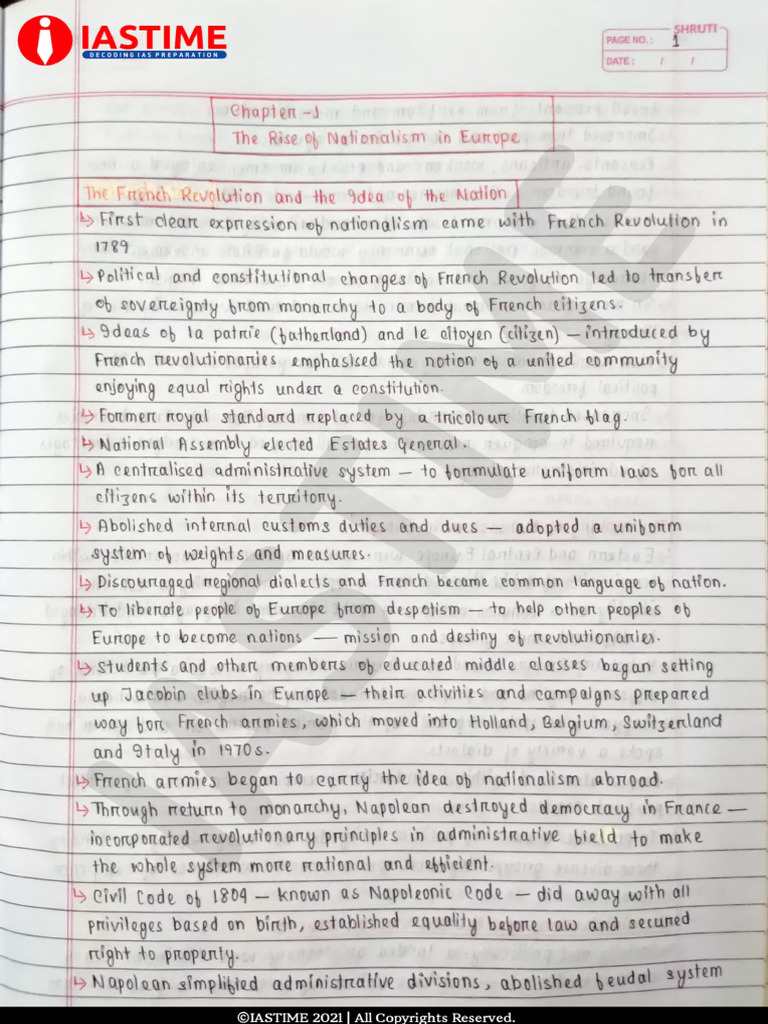 IASTIME
DECODING IAS PREPARATION
SHRUTI
PAGE NO.: 1
DATE: / /
Chapter -1
The Rise of Nationalism in Europe
The French Revolution and the Idea of the Nation
↳ First clear expression of nationalism came with French Revolution in
1789
↳ Political and constitutional changes of French Revolution led to transfer
of sovereignty from monarchy to a body of French citizens.
↳ Ideas of la patrie (fatherland) and le citoyen (citizen) — introduced by
French revolutionaries emphasised the notion of a united community
enjoying equal rights under a constitution.
↳ Former royal standard replaced by a tricolour French flag.
↳ National Assembly elected Estates General.
↳ A centralised administrative system — to formulate uniform laws for all
citizens within its territory.
↳ Abolished internal customs duties and dues — adopted a uniform
system of weights and measures.
↳ Discouraged regional dialects and French became common language of nation.
↳ To liberate people of Europe from despotism — to help other peoples of
Europe to become nations — mission and destiny of revolutionaries.
↳ Students and other members of educated middle classes began setting
up Jacobin clubs in Europe — their activities and campaigns prepared
way for French armies, which moved into Holland, Belgium, Switzerland
and Italy in 1970s.
↳ French armies began to carry the idea of nationalism abroad.
↳ Through return to monarchy, Napolean destroyed democracy in France —
incorporated revolutionary principles in administrative field to make
the whole system more rational and efficient.
↳ Civil Code of 1804 — known as Napoleonic Code — did away with all
privileges based on birth, established equality before law and secured
right to property.
↳ Napolean simplified administrative divisions, abolished feudal system
IASTIME
©IASTIME 2021 | All Copyrights Reserved.